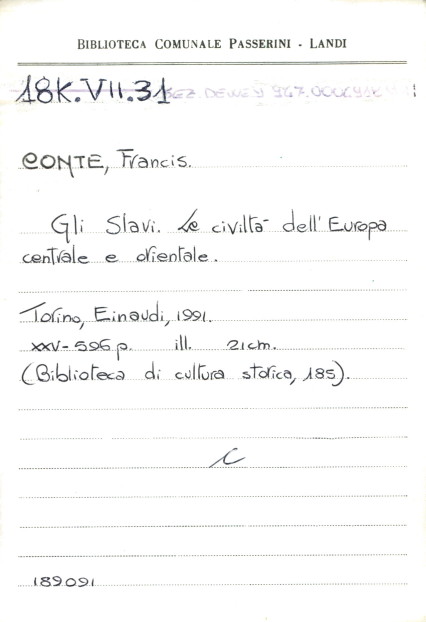 BIBLIOTECA COMUNALE PASSERINI - LANDI
18K.VII.31 SEZ. DEWEY
CONTE, Francis.
Gli Slavi. Le civiltà dell'Europa
centrale e orientale.
Torino, Einaudi, 1991.
XXV-596 p. ill. 21cm.
(Biblioteca di cultura storica, 185).
C
189091